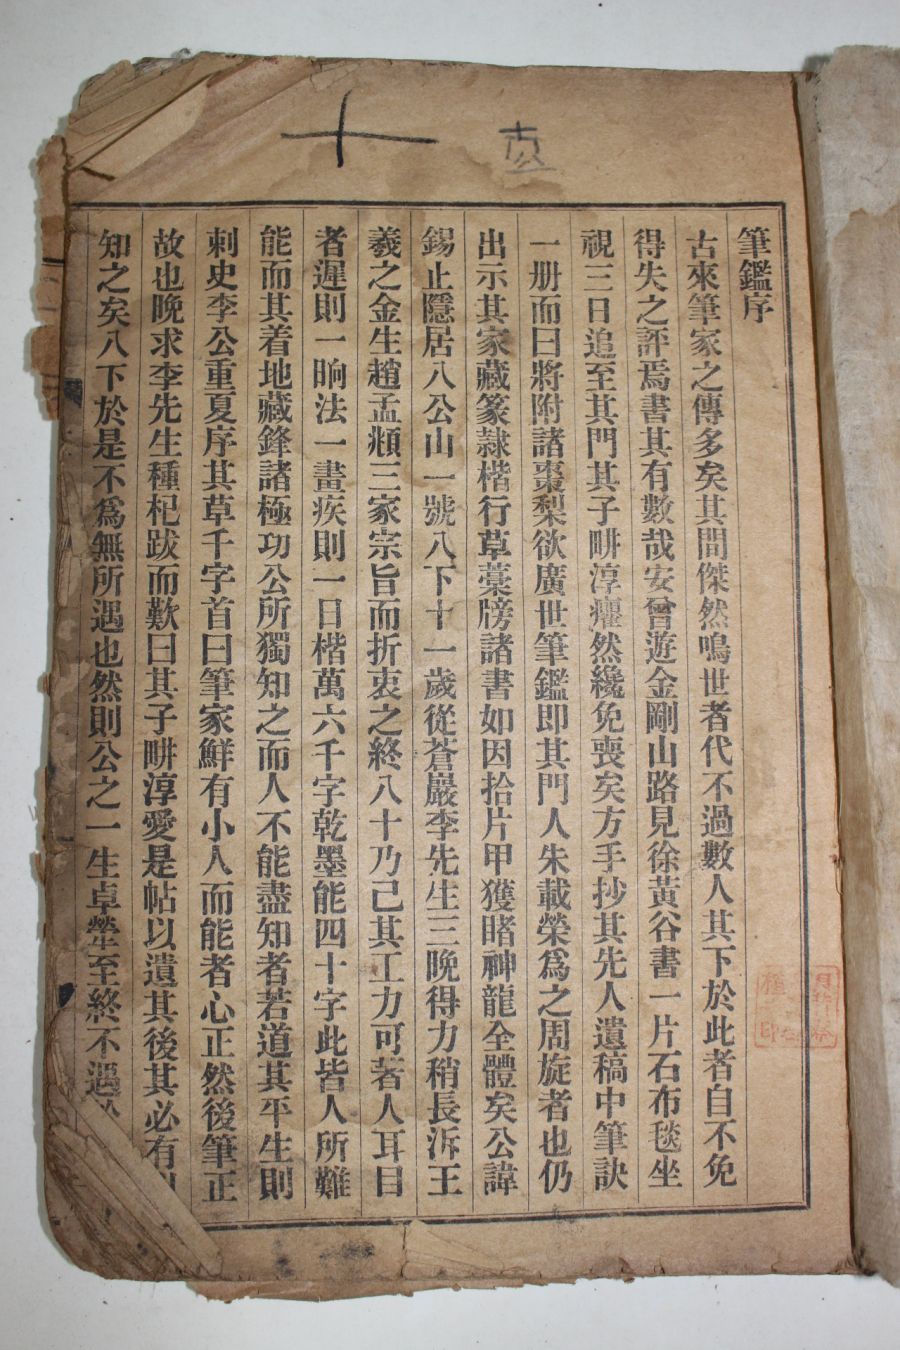 筆鑑序
古來筆家之傳多矣其間傑然鳴世者代不過數人其下於此者自不免
得失之評焉書其有數哉安曾遊金剛山路見徐黃谷書一片石布毯坐
視三日追至其門其子畊淳癯然纔免喪矣方手抄其先人遺稿中筆訣
一册而曰將附諸棗梨欲廣世筆鑑即其門人朱載榮爲之周旋者也仍
出示其家藏篆隷楷行草藁牓諸書如因拾片甲獲睹神龍全體矣公諱
錫止隱居八公山一號八下十一歲從蒼巖李先生三晩得力稍長泝王
羲之金生趙孟頫三家宗旨而折衷之終八十乃己其工力可著人耳目
者遲則一晌法一畫疾則一日楷萬六千字乾墨能四十字此皆人所難
能而其着地藏鋒諸極功公所獨知之而人不能盡知者若道其平生則
刺史李公重夏序其草千字首曰筆家鮮有小人而能者心正然後筆正
故也晩求李先生種杞跋而歎曰其子畊淳愛是帖以遺其後其必有
知之矣八下於是不爲無所遇也然則公之一生卓犖至終不遇
十